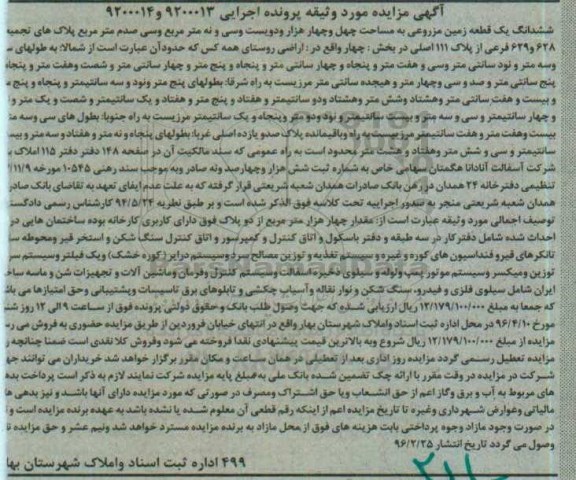 آگهی مزایده مورد وثیقه پرونده اجرایی ۹۲۰۰۰۱۳ و۹۲۰۰۰۱۴
ششدانگ یک قطعه زمین مزروعی به مساحت چهل وچهار هزار ودویست وسی و نه متر مربع وسی صدم متر مربع پلاک های تجمیع
۶۲۸ و۶۲۹ فرعی از پلاک ۱۱۱ اصلی در بخش : چهار واقع در : اراضی روستای همه کس که حدودآن عبارت است از شمالا: به طولهای س
وسه متر و نود سانتی متر وسی و هفت متر و پنجاه و چهار سانتی متر و پنجاه و پنج متر و چهار سانتی متر و شصت وهفت متر و پنجاه
پنج سانتی متر و صد و سی وچهار متر و هیجده سانتی متر مرزیست به راه شرقا: بطولهای پنج متر ونود و سه سانتیمتر و پنجاه و پنج
و بیست و هفت سانتی متر وهشتاد وشش متر وهشتاد ودو سانتیمتر و هفتاد و پنج متر و هفتاد و یک سانتیمتر و شصت و یک متر و
و چهار سانتیمتر و سی و سه متر و بیست سانتیمتر و نود ودو متر وپنجاه و یک سانتیمتر مرزیست به راه جنوبا: بطول های سی وسه
بیست وهفت متر و هفت سانتیمتر مرزیست به راه وباقیمانده پلاک صدو یازده اصلی غربا: بطولهای پنجاه و نه متر و هفتاد و سه متر و
سانتیمتر و سی و شش متر وهفتاد و هشت متر محدود است به راه عمومی که سند مالکیت آن در صفحه ۱۴۸ دفتر دفتر ۱۱۵ املاک
شرکت آسفالت آنادانا هگمتان سهامی خاص به شماره ثبت شش هزار وچهارصد ونه صادر وبه موجب سند رهنی ۱۰۵۴۵ مورخه ۱۱/۹/
تنظیمی دفترخانه ۲۴ همدان در رهن بانک صادرات همدان شعبه شریعتی قرار گرفته که به علت عدم ایفای تعهد به تقاضای بانک صادر
همدان شعبه شریعتی منجر به صدور اجراییه تحت کلاسه فوق الذکر شده است و بر طبق نظریه ۹۴/۵/۲۴ کارشناس رسمی دادگست
توصیف اجمالی مورد وثیقه عبارت است از: مقدار چهار هزار متر مربع از دو پلاک فوق دارای کاربری کارخانه بوده ساختمان هایی در
احداث شده شامل دفترکار در سه طبقه و دفتر باسکول و اتاق کنترل و کمپرسور و اتاق کنترل سنگ شکن و استخر قیر ومحوطه
تانکرهای قیرو فنداسیون های کوره و غیره و سیستم تغذیه و توزین مصالح سرد وسیستم درایر( کوره خشک) ویک فیلتر وسیستم
توزین ومیکسر وسیستم موتور پمپ ولوله و سیلوی ذخیره آسفالت و سیستم کنترل وفرمان وماشین آلات و تجهیزات شن و ماسه
ایران شامل سیلوی فلزی و فیدرو، سنگ شکن و نوار نقاله وآسیاب چکشی و تابلوهای برق تاسیسات وپشتیبانی وحق امتیازها می
که جمعا به مبلغ ۱۲/۱۷۹/۱۰۰/۰۰۰ ریال ارزیابی شده که جهت وصول طلب بانک و حقوق دولتی پرونده فوق از ساعت ۹ الی ۱۲ روز
مورخ ۹۶/۴/۱۰ در محل اداره ثبت اسناد واملاک شهرستان بهار واقع در انتهای خیابان فروردین از طریق مزایده حضوری به فروش می
مزایده از مبلغ ۱۲/۱۷۹/۱۰۰/۰۰۰ ریال شروع وبه بالاترین قیمت پیشنهادی نقدا فروخته می شود وفروش کلا نقدی است ضمنا چنانچه
مزایده تعطیل رسمی گردد مزایده روز اداری بعد از تعطیلی در همان ساعت و مکان مقرر برگزار خواهد شد خریداران می توانند
شرکت در مزایده در وقت مقرر با ارائه چک تضمین شده بانک ملی به مبلغ پایه مزایده شرکت نمایند لازم به ذکر است پرداخت
های مربوط به آب و برق وگاز اعم از حق انشعاب ویا حق اشتراک ومصرف در صورتی که مورد مزایده دارای آنها باشند و نیز بدهی
مالیاتی وعوارض شهرداری وغیره تا تاریخ مزایده اعم از اینکه رقم قطعی آن معلوم شده یا نشده باشد به عهده برنده مزایده است و
در صورت وجود مازاد وجوه پرداختی بابت هزینه های فوق از محل مازاد به برنده مزایده مسترد خواهد شد ونیم عشر و حق مزایده
وصول می گردد تاریخ انتشار ۹۶/۲/۲۵
۴۹۹ اداره ثبت اسناد واملاک شهرستان